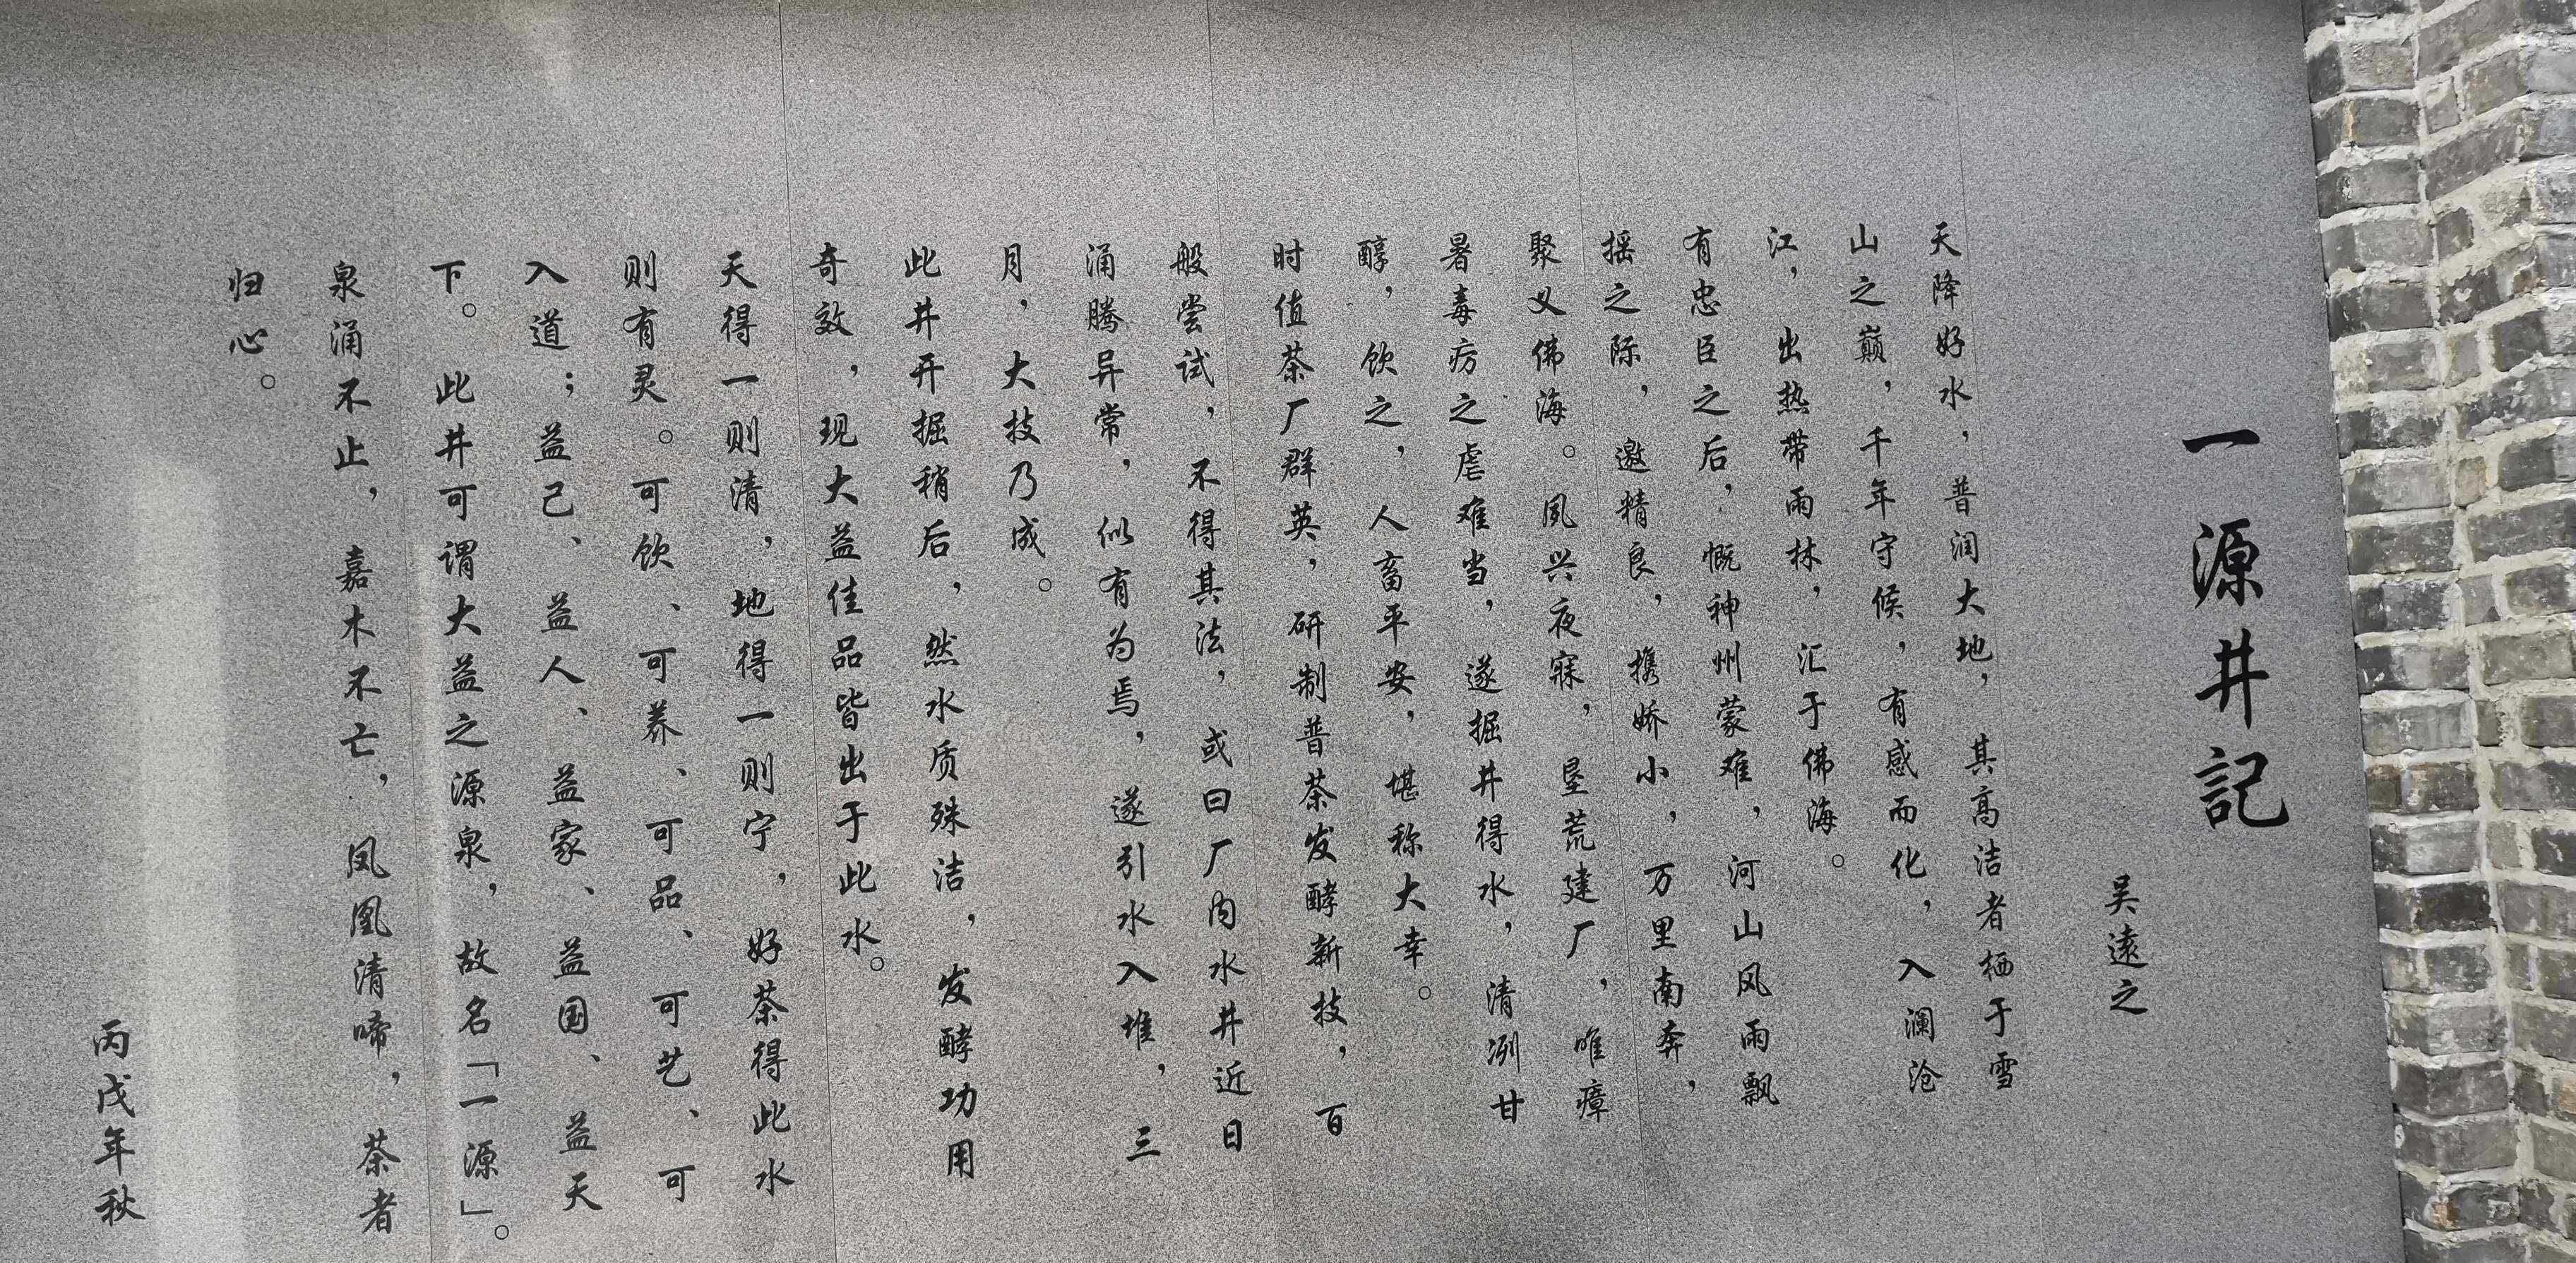 一源井記
吴遠之
天降好水，普润大地，其高洁者栖于雪
山之巅，千年守候，有感而化，入澜沧
江，出热带雨林，汇于佛海。
有忠臣之后，慨神州蒙难，河山风雨飘
摇之际，邀精良，携娇小，万里南奔，
聚义佛海。夙兴夜寐，垦荒建厂，唯瘴
暑毒疠之虐难当，遂掘井得水，清冽甘
醇，饮之，人畜平安，堪称大幸。
时值茶厂群英，研制普茶发酵新技，百
般尝试，不得其法，或曰厂内水井近日
涌腾异常，似有为焉，遂引水入堆，三
月，大技乃成。
此井开掘稍后，然水质殊洁，发酵功用
奇效，现大益佳品皆出于此水。
天得一则清，地得一则宁，好茶得此水
则有灵。可饮、可养、可品、可艺、可
入道；益己、益人、益家、益国、益天
下。此井可谓大益之源泉，故名「一源」。
泉涌不止，嘉木不亡，凤凰清啼，茶者
归心。
丙戌年秋